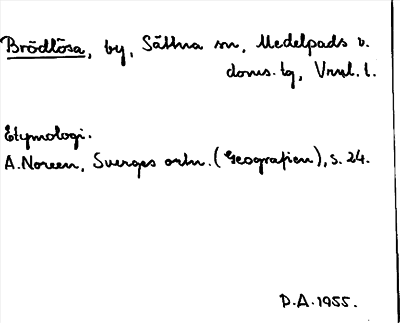 Brödlösa, by, Sättna sn, Medelpads v.
doms. tg, Vrnl. l.
Etymologi.
A. Noreen, Sverges ortn. (Geografien), s. 24.
D.A. 1955.